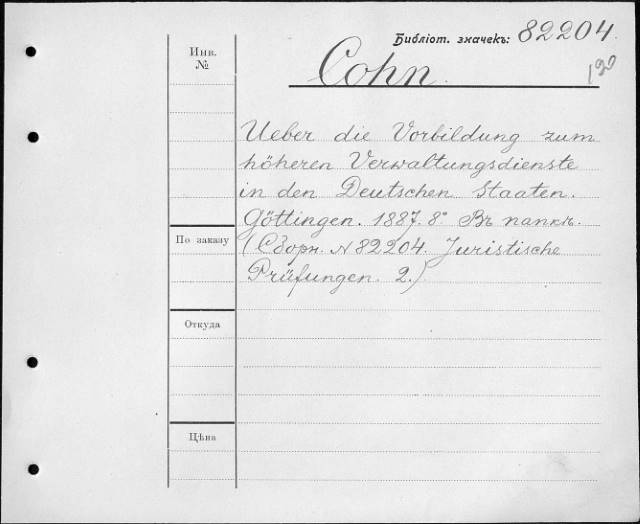 Библіот. значекъ: 82204.
Инв.
№
Cohn.
120
Ueber die Vorbildung zum
höheren Verwaltungsdienste
in den Deutschen Staaten.
Göttingen. 1887. 8° Въ папкъ.
По заказу
(Сборн. № 82204. Juristische
Prüfungen. 2.)
Откуда
Цѣна